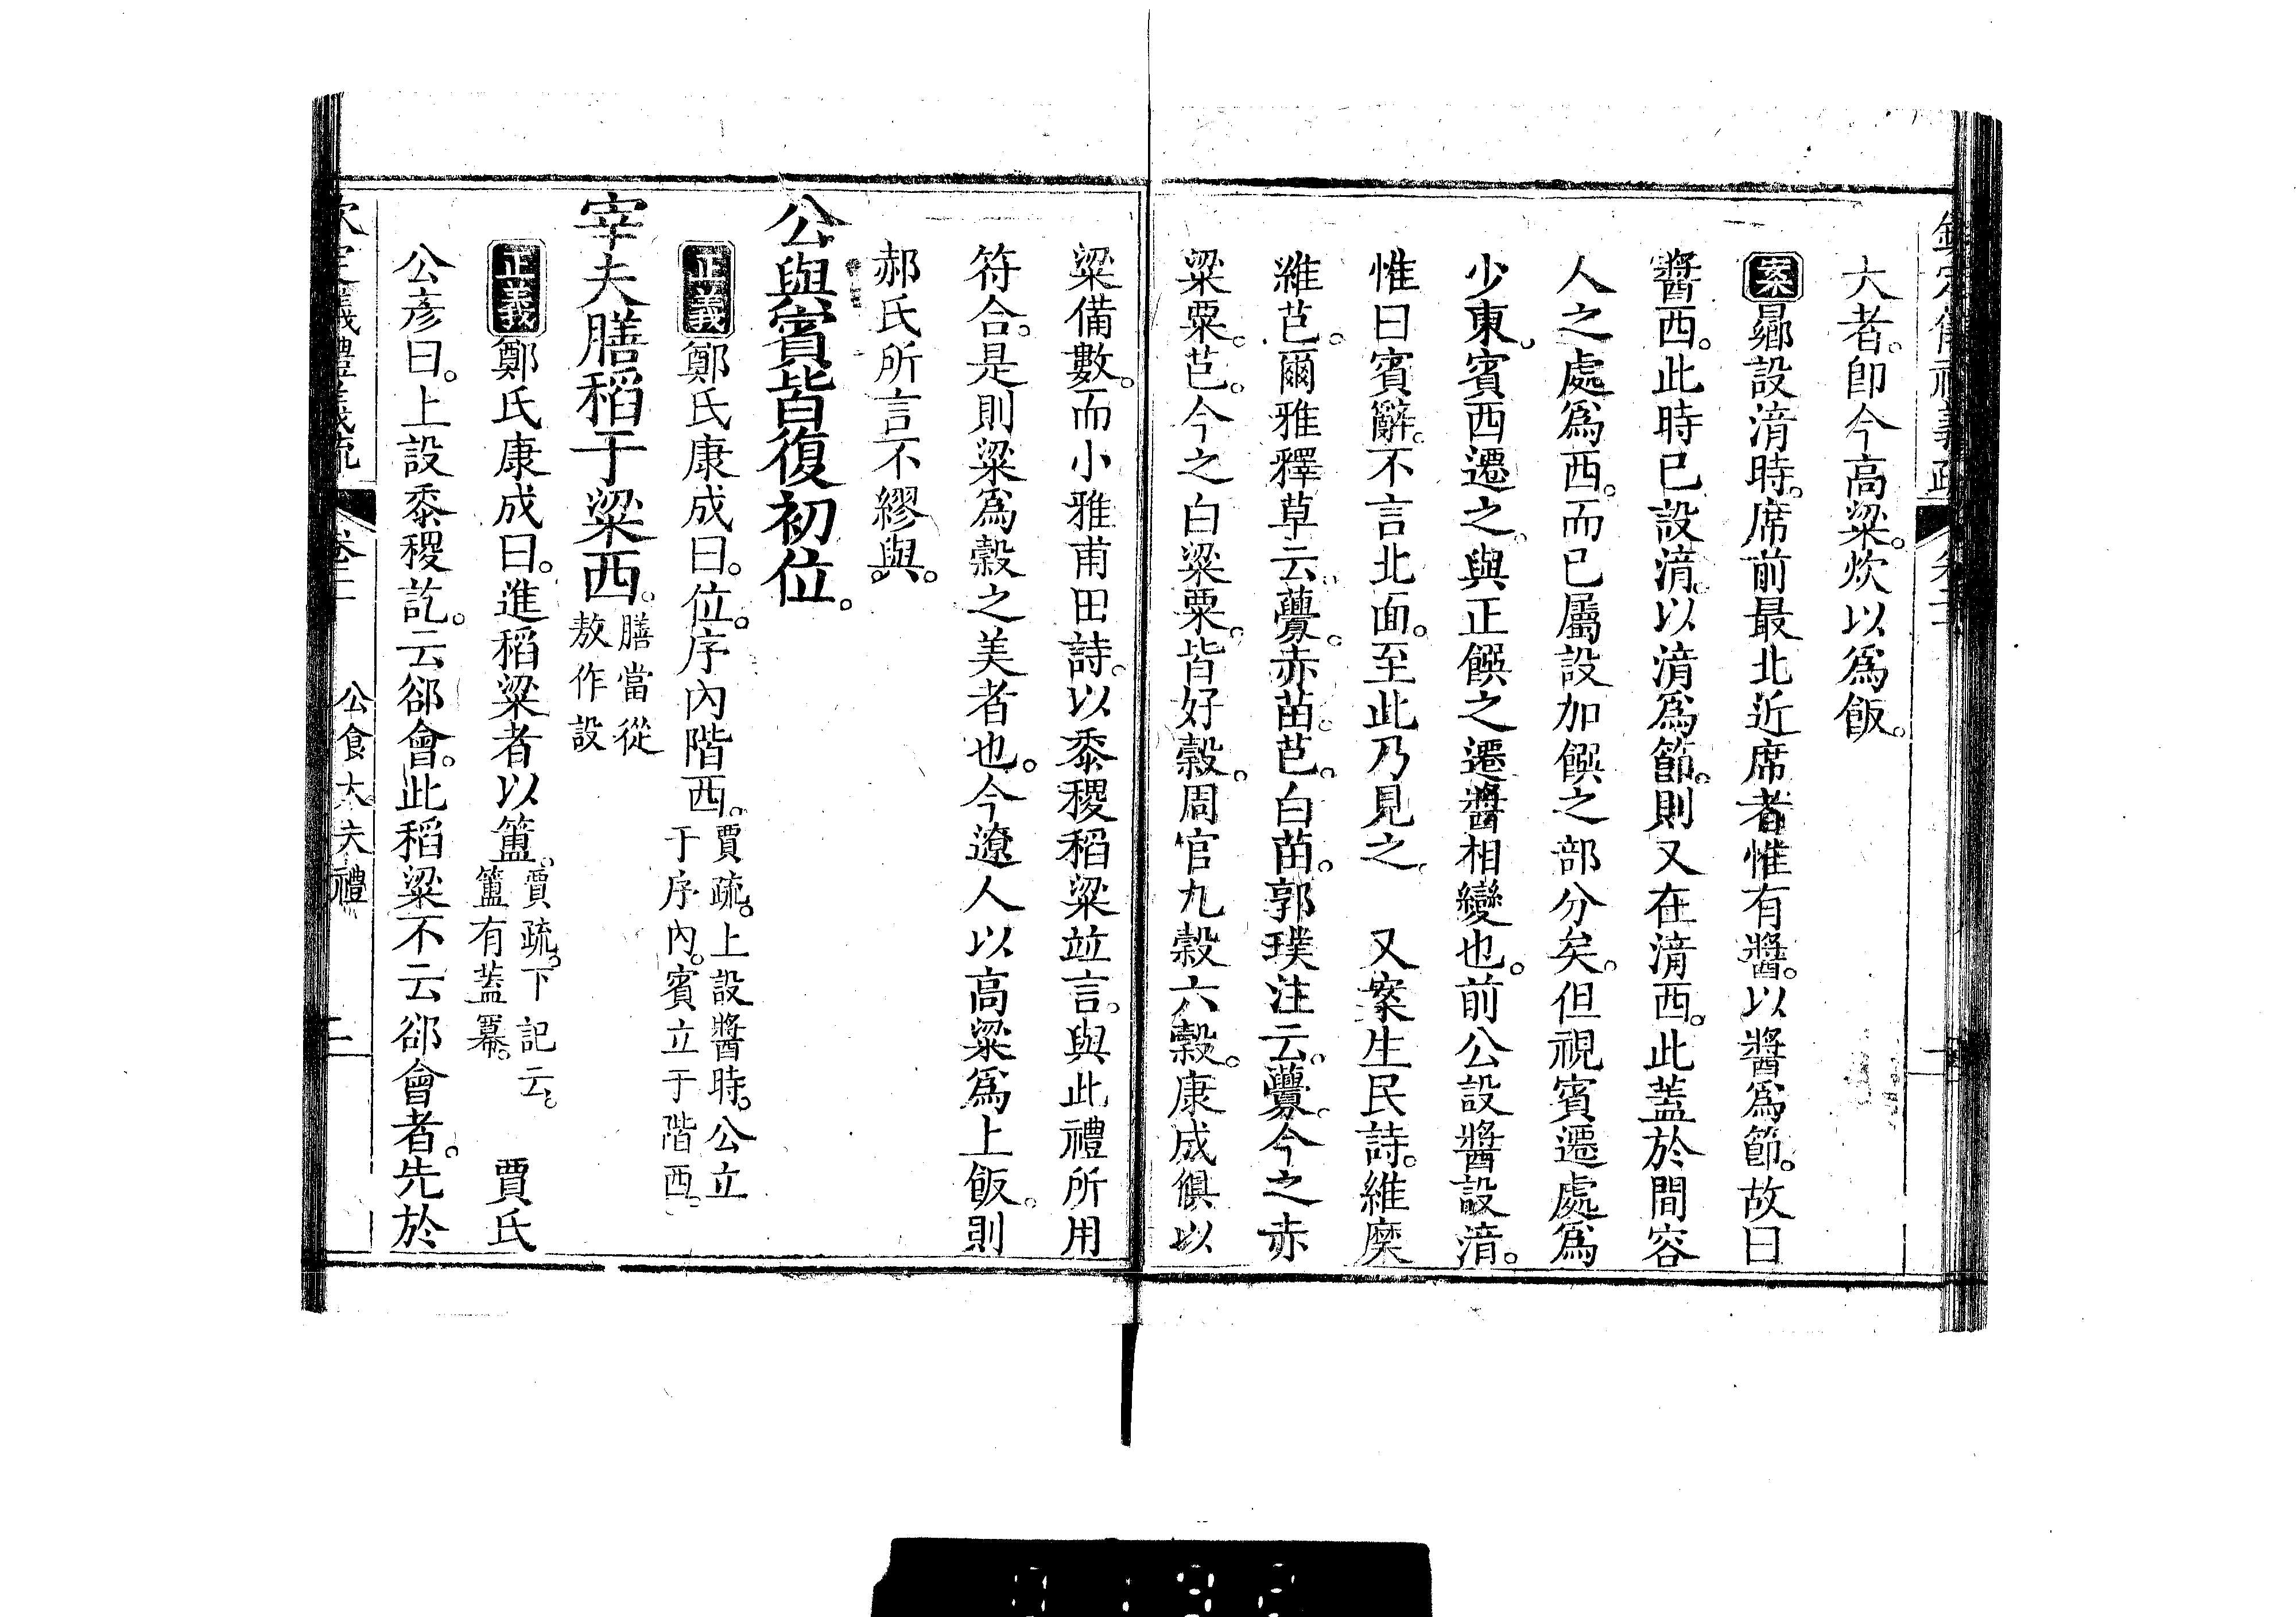 大者。卽今高粱。炊以爲飯。
案曏設湇時。席前最北近席者惟有醬。以醬爲節。故曰
醬西。此時已設湇。以湇爲節。則又在湇西。此蓋於閒容
人之處爲西。而已屬設加饌之部分矣。但視賓遷處爲
少東。賓西遷之。與正饌之遷醬相變也。前公設醬設湇。
惟曰賓辭。不言北面。至此乃見之。 又案生民詩。維穈
維芑。爾雅釋草云。虋。赤苗。芑。白苗。郭璞注云。虋。今之赤
粱粟。芑。今之白粱粟。皆好穀。周官九穀六穀。康成俱以
粱備數。而小雅甫田詩。以黍稷稻粱竝言。與此禮所用
符合。是則粱爲穀之美者也。今遼人以高粱爲上飯。則
郝氏所言不繆與。
公與賓皆復初位。
正義鄭氏康成曰。位。序內階西。賈疏。上設醬時。公立于序內。賓立于階西。
宰夫膳稻于粱西。膳當從敖作設
正義鄭氏康成曰。進稻粱者以簠。賈疏。下記云。簠有蓋冪。 賈氏
公彥曰。上設黍稷訖。云郤會。此稻粱不云郤會者。先於
公食大夫禮